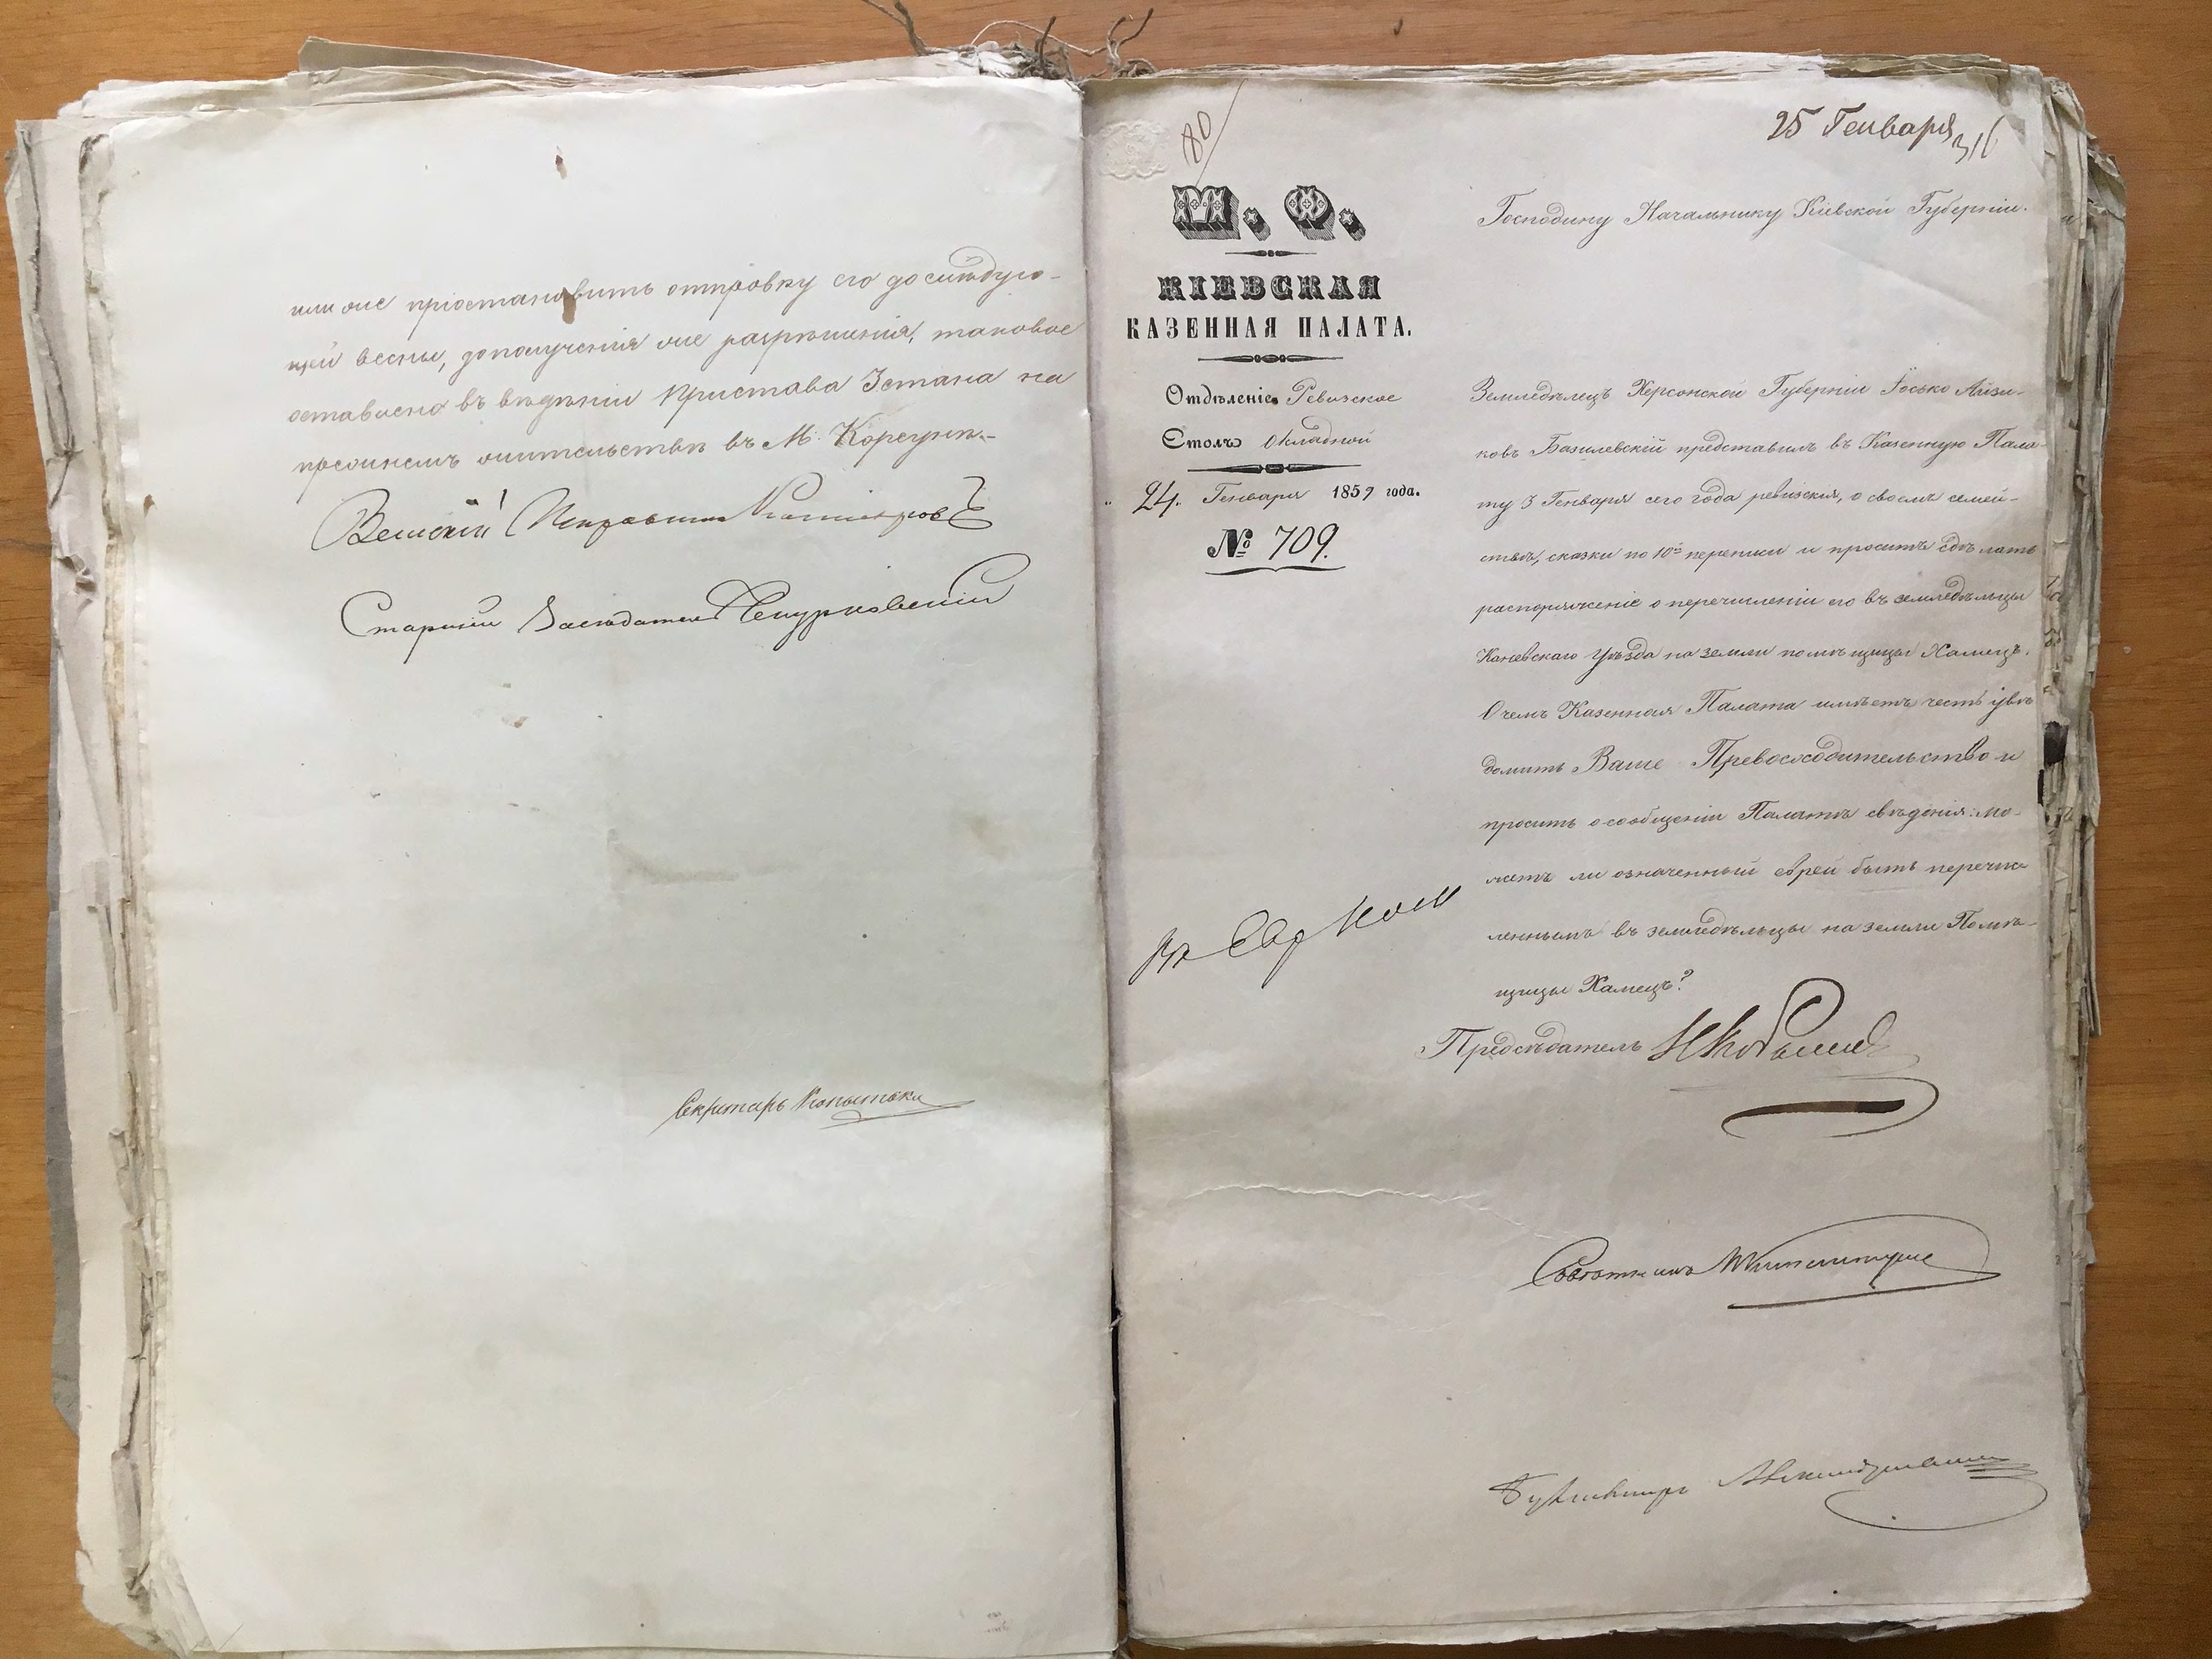 или же пріостановить отправку его до слѣдую-
щей весны, до полученія же разрѣшенія, таковое
оставлено въ вѣдѣніи Пристава 3 стана на
прежнемъ жительствѣ въ М. Корсунѣ.-
Земскій Исправникъ
Старшій Засѣдатель
Секретарь
80
25 Генваря
316
М. Ф.
КІЕВСКАЯ
КАЗЕННАЯ ПАЛАТА.
Отдѣленіе Ревизское
Столъ Окладной
24 Генваря 1859 года.
№ 709.
Господину Начальнику Кіевской Губерніи.
Земледѣлецъ Херсонской Губерніи Іосько Айзи-
ковъ Базилевскій представилъ въ Казенную Пала-
ту 3 Генваря сего года ревизскія, о своемъ семей-
ствѣ, сказки по 10й переписи и проситъ сдѣлать
распоряженіе о перечисленіи его въ земледѣльцы
Каневскаго Уѣзда на земли помѣщицы Хамецъ.
О чемъ Казенная Палата имѣетъ честь увѣ
домить Ваше Превосходительство и
просить о сообщеніи Палатѣ свѣдѣнія: мо-
жетъ ли означенный еврей быть перечис
леннымъ въ земледѣльцы на земли Помѣ-
щицы Хамецъ?
Предсѣдатель
Совѣтникъ
Бухгалтеръ